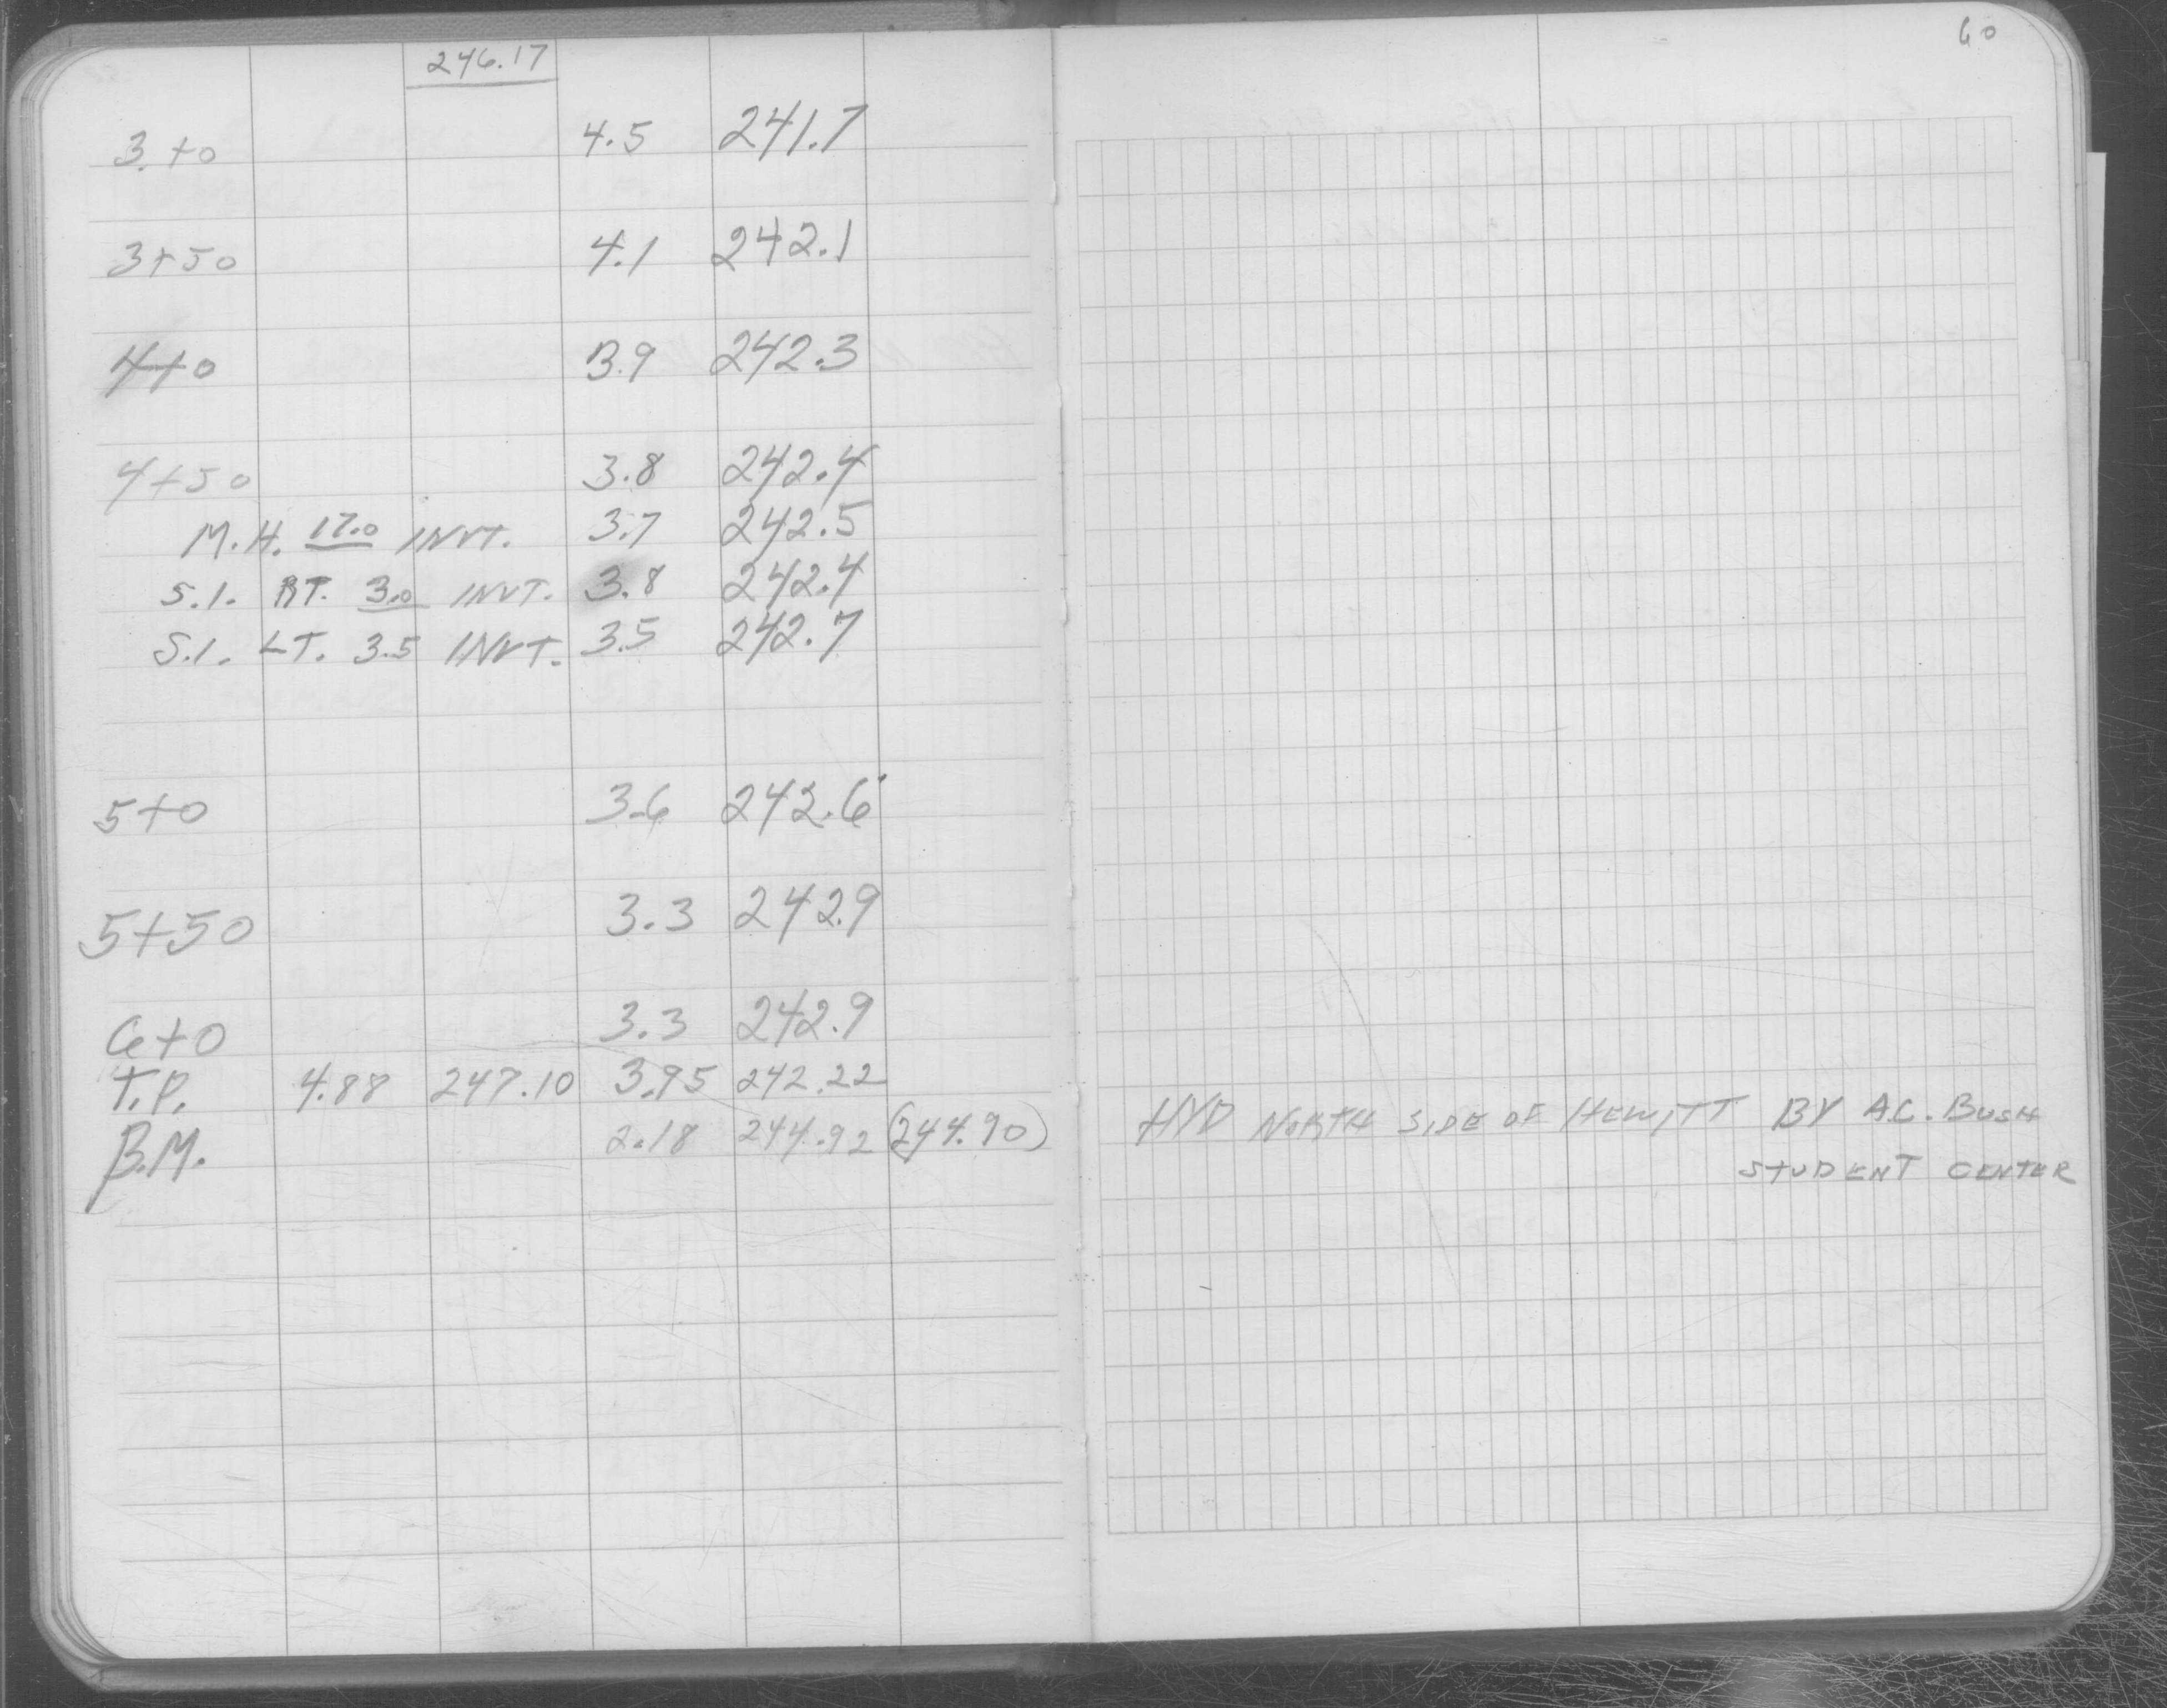 60
246.17
3+0 4.5 241.7
3+50 4.1 242.1
4+0 3.9 242.3
4+50 3.8 242.4
M.H. 17.0 INVT. 3.7 242.5
S.I. RT. 3.0 INVT. 3.8 242.4
S.I. LT. 3.5 INVT. 3.5 242.7
5+0 3.6 242.6
5+50 3.3 242.9
6+0 3.3 242.9
T.P. 4.88 247.10 3.95 242.22
B.M. 2.18 244.92 (244.90) HYD NORTH SIDE OF HEWITT BY A.C. BUSH
STUDENT CENTER